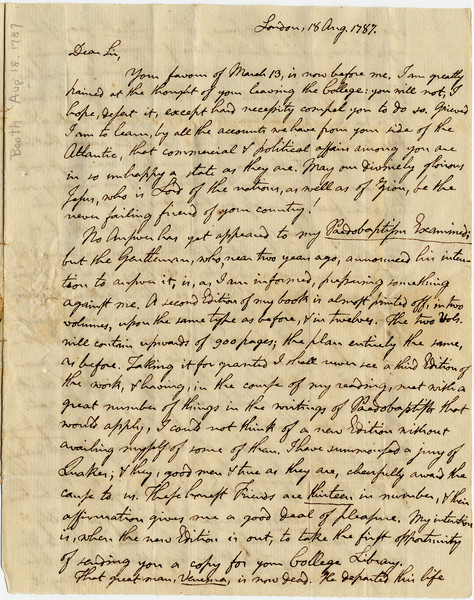 London, 18 Aug. 1787.
Dear Sir,
Your favour of March 13, is now before me. I am greatly
pained at the thought of your leaving the College: you will not, I
hope, desert it, except hard necessity compel you to do so. Grieved
I am to learn, by all the accounts we have from your side of the
Atlantic, that commercial & political affairs among you are
in so unhappy a state as they are. May our divinely glorious
Jesus, who is Lord of the nations, as well as of Zion, be the
never failing friend of your country!
No Answer has yet appeared to my Pædobaptism Examined;
but the Gentleman, who, near two years ago, announced his inten-
tion to answer it, is, as I am informed, preparing something
against me. A second Edition of my book is almost printed off, in two
volumes, upon the same type as before, & in twelves. The two Vols.
will contain upwards of 900 pages; the plan entirely the same,
as before. Taking it for granted I shall never see a third Edition of
the work, & having, in the course of my reading, met with a
great number of things in the writings of Pædobaptists that
would apply, I could not think of a new Edition without
availing myself of some of them. I have summonsed a jury of
Quakers; & they, good men & true as they are, chearfully award the
cause to us. These honest Friends are thirteen in number, & their
affirmation gives me a good deal of pleasure. My intention
is, when the new Edition is out, to take the first opportunity
of sending you a copy for your College Library.
That great man, Venema, is now dead. He departed this life
Booth Aug 18. 1787